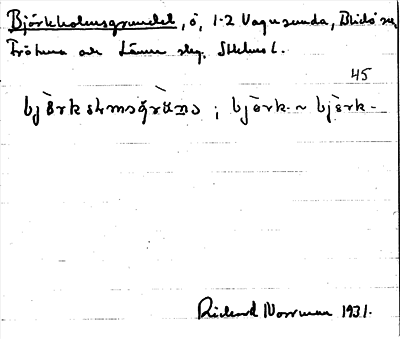 Björkholmsgrundet, ö, 1-2 Vagnsunda, Blidö sn,
Frötuna och Länna slg. Sthlms l.
45
; bjòrk- ~ bjèrk-
Richard Norrman 1931.